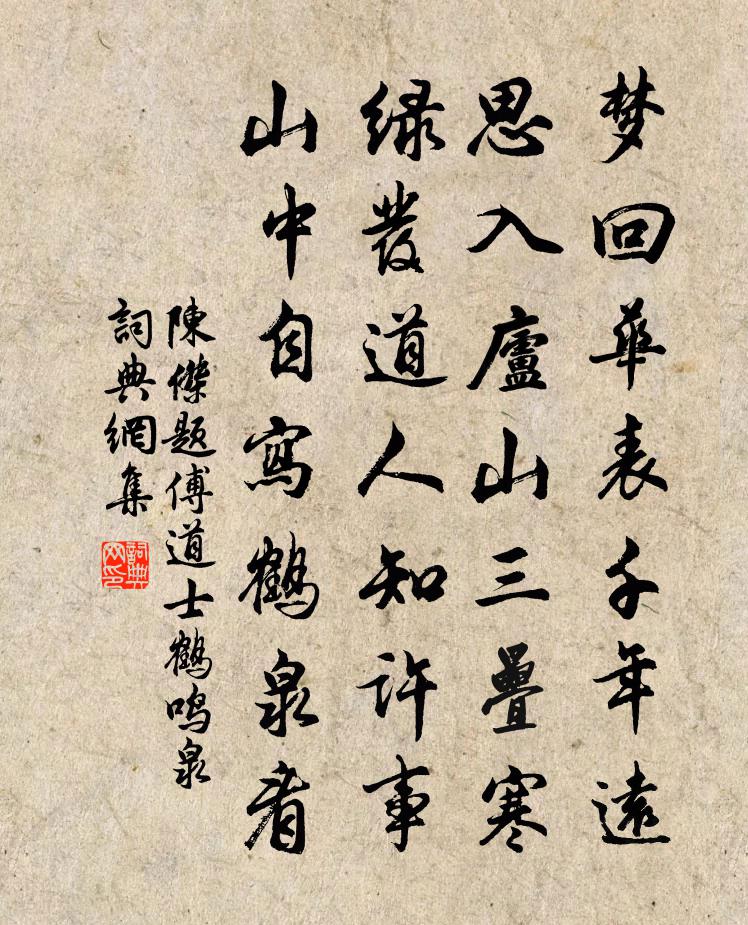 梦回華表千年遠
思入廬山三疊寒
緑發道人知許事
山中自寫鶴泉看
陳傑題傅道士鶴鳴泉
詞典網集
詞典网印